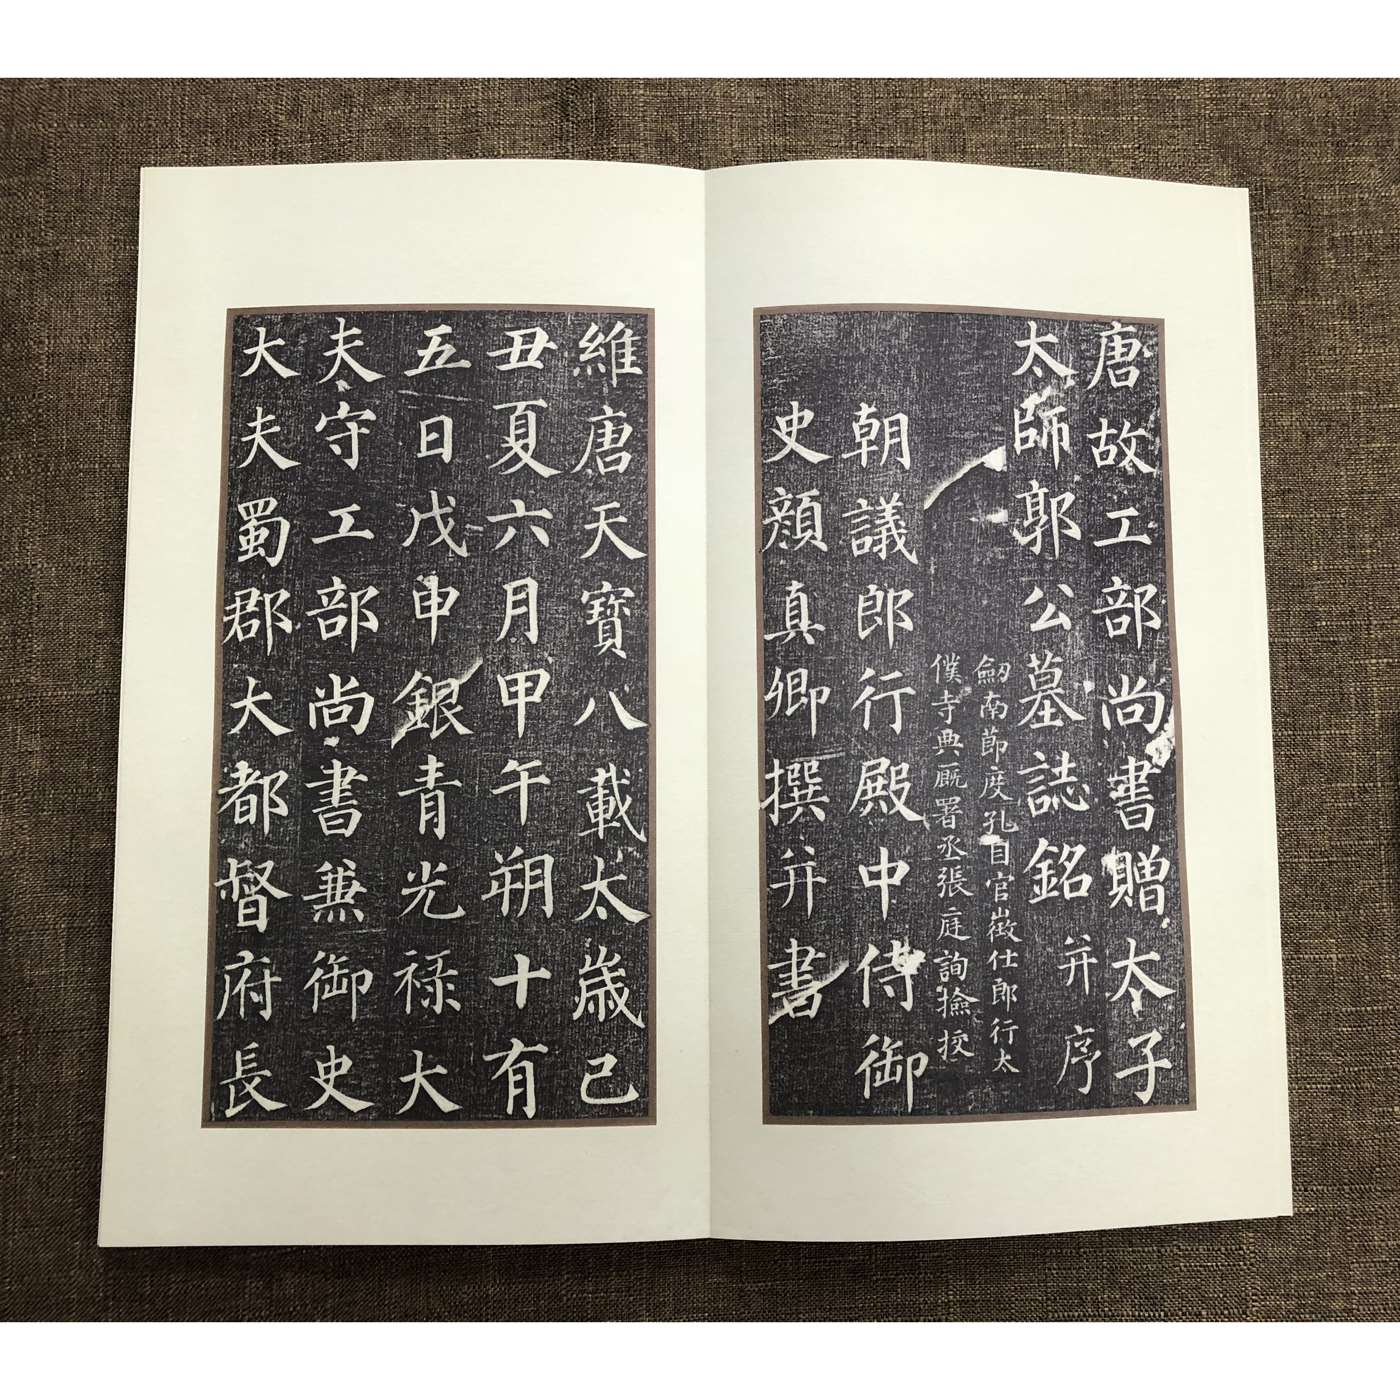 唐故工部尚書贈太子
太師郭公墓誌銘并序
劒南節度孔目官徵仕郎行太
僕寺典廐署丞張庭詢撿挍
朝議郎行殿中侍御
史顏真卿撰并書
維唐天寶八載太歲己
丑夏六月甲午朔十有
五日戊申銀青光禄大
夫守工部尚書兼御史
大夫蜀郡大都督府長